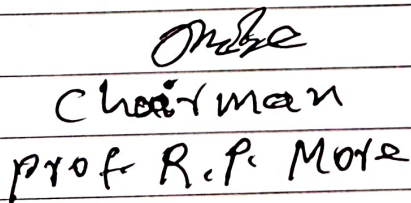 Chairman
Prof. R. P. More